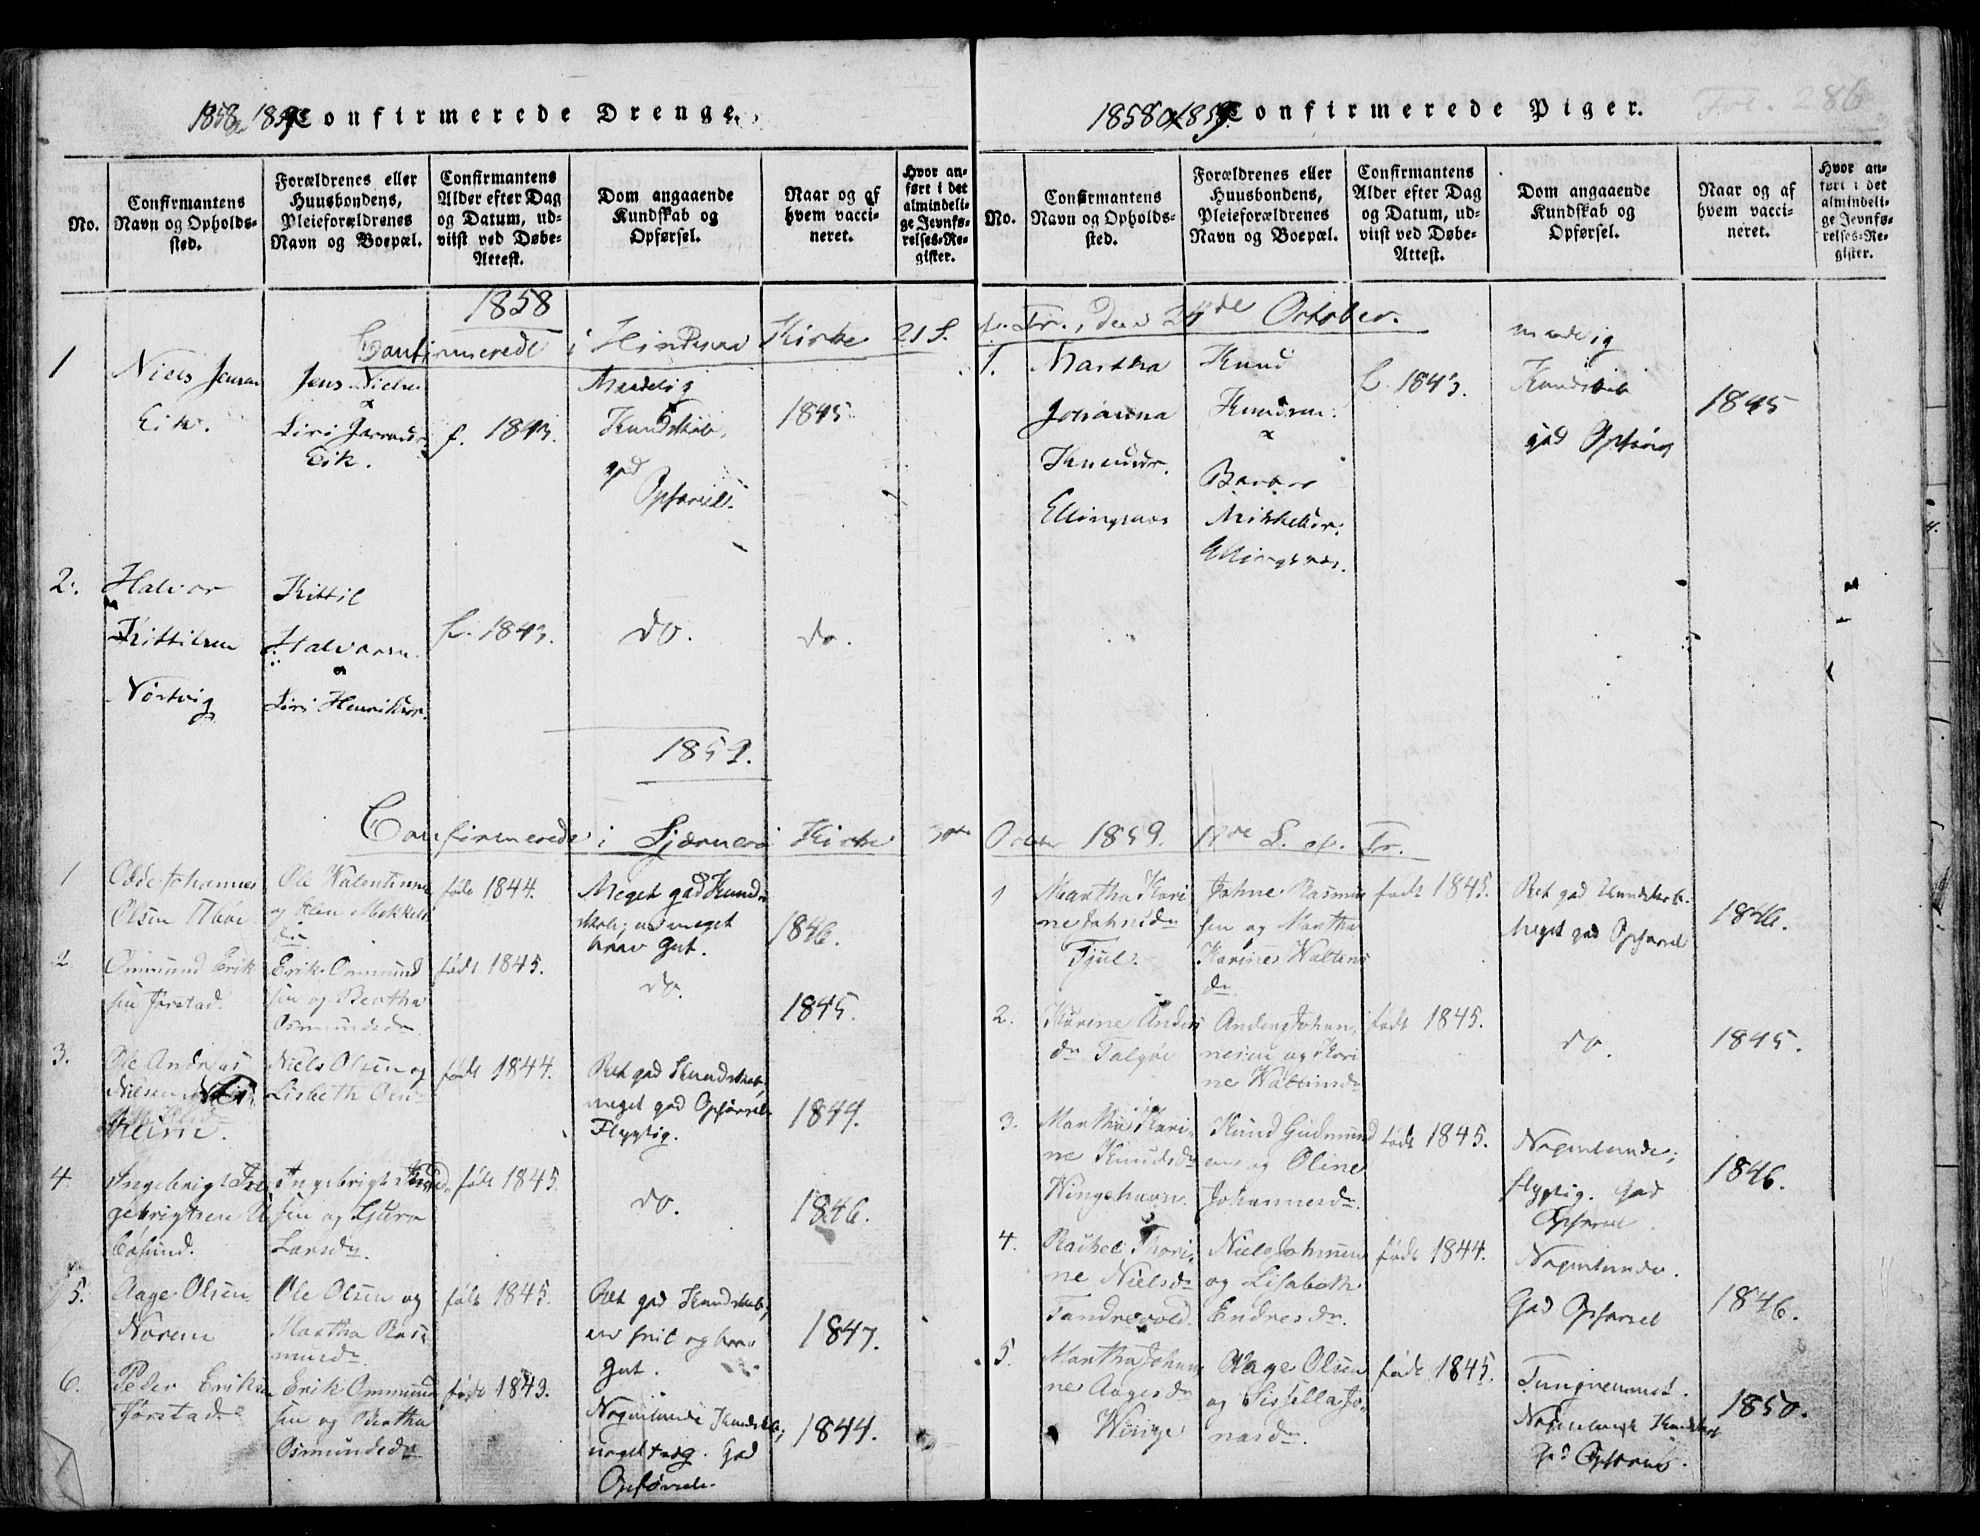 1858 1859 Confirmerede Drenge.
No.
Confirmantens
Navn og Opholds-
sted.
Forældrenes eller
Huusbondens,
Pleieforældrenes
Navn og Boepæl.
Confirmantens
Alder efter Dag
og Datum, ud-
viist ved Døbe-
Attest.
Dom angaaende
Kundskab og
Opførsel.
Naar og af
hvem vacci-
neret.
Hvor an-
ført i det
almindeli-
ge Jevnfø-
relses-Re-
gister.
1858
Confirmerede i Kirke 21 S.
1
Niels Jensen
Eik.
Jens Nielsen
Siri
Eik.
f. 1843.
Maadelig
Kundskab,
god
Opførsel.
1845
2.
Halvor
Kittilsen
Nørtvig
Kittil
Halvorsen
Siri Henriksdr.
f. 1843.
do.
do.
1859.
Confirmerede i Sjærnerø Kirke
1
Odde Johannes
Olsen
Ole Valentinsen
og Elen Mikkels
dr
født 1844.
Meget god Kund-
skab; en meget
brav Gut.
1846.
2
Ommund Erik
sen Jørstad.
Erik Ommund
sen og Bertha
Osmundsdr
født 1845.
do.
1845.
3.
Ole Andreas
Nilsen
Niels Olsen og
Lisbeth Olsdr
født 1844.
Ret god Kundskab,
meget god Opførsel.
Flygtig.
1844.
4
Ingebrigt In-
gebrigtsen
Ingebrigt Knud-
sen og
Larsdr.
født 1845.
do.
1846.
5.
Aage Olsen
Norem
Ole Olsen og
Martha Ras-
musdr.
født 1845.
Ret god Kundskab;
en snil og brav
Gut.
1847.
6.
Peder Eriksen
Jørstad.
Erik Ommund
sen og Bertha
Osmundsdr
født 1843.
Nogenlunde Kundskab;
noget tung. God
Opførsel.
1844.
1858 og 1859. Confirmerede Piger.
Fol. 286
No.
Confirmantens
Navn og Opholds-
sted.
Forældrenes eller
Huusbondens,
Pleieforældrenes
Navn og Boepæl.
Confirmantens
Alder efter Dag
og Datum, ud-
viist ved Døbe-
Attest.
Dom angaaende
Kundskab og
Opførsel.
Naar og af
hvem vacci-
neret.
Hvor an-
ført i det
almindeli-
ge Jevnfø-
relses-Re-
gister.
Tr., den 24de October.
1.
Martha
Johanna
Knudsdr.
Ellingsnes
Knud
Knudsen.
Barbro
Mikkelsdr.
Ellingsnes.
f. 1843.
maadelig
Kundskab
god Opførsel
1845
October 1859. S. ef. Tr.
1
Martha Kari
ne Johnsdr
Tjul.
Johne Rasmus
sen og Martha
Karine
født 1845.
Ret god Kundskab.
Meget god Opførsel
1846.
2.
Karine Anders
dr Talgøe
Anders Johan-
nesen og Kari
ne
født 1845.
do.
1845.
3.
Martha Kari-
ne Knudsdr
Knud Gudmund
sen og Oline
Johannesdr.
født 1845.
Nogenlunde;
flygtig. God
Opførsel.
1846.
4.
Rachel Thori-
ne Nielsdr
Tandrevold.
Niels Johnsen
og Lisabeth
Endresdr.
født 1844.
Nogenlunde.
God Opførsel
1846.
5.
Martha Johan-
ne Aagesdr
Winge
Aage Olsen
og Sissella Jo-
nasdr.
født 1845.
Tungnemmet.
Nogenlunde Kundskab
God Opførsel.
1850.